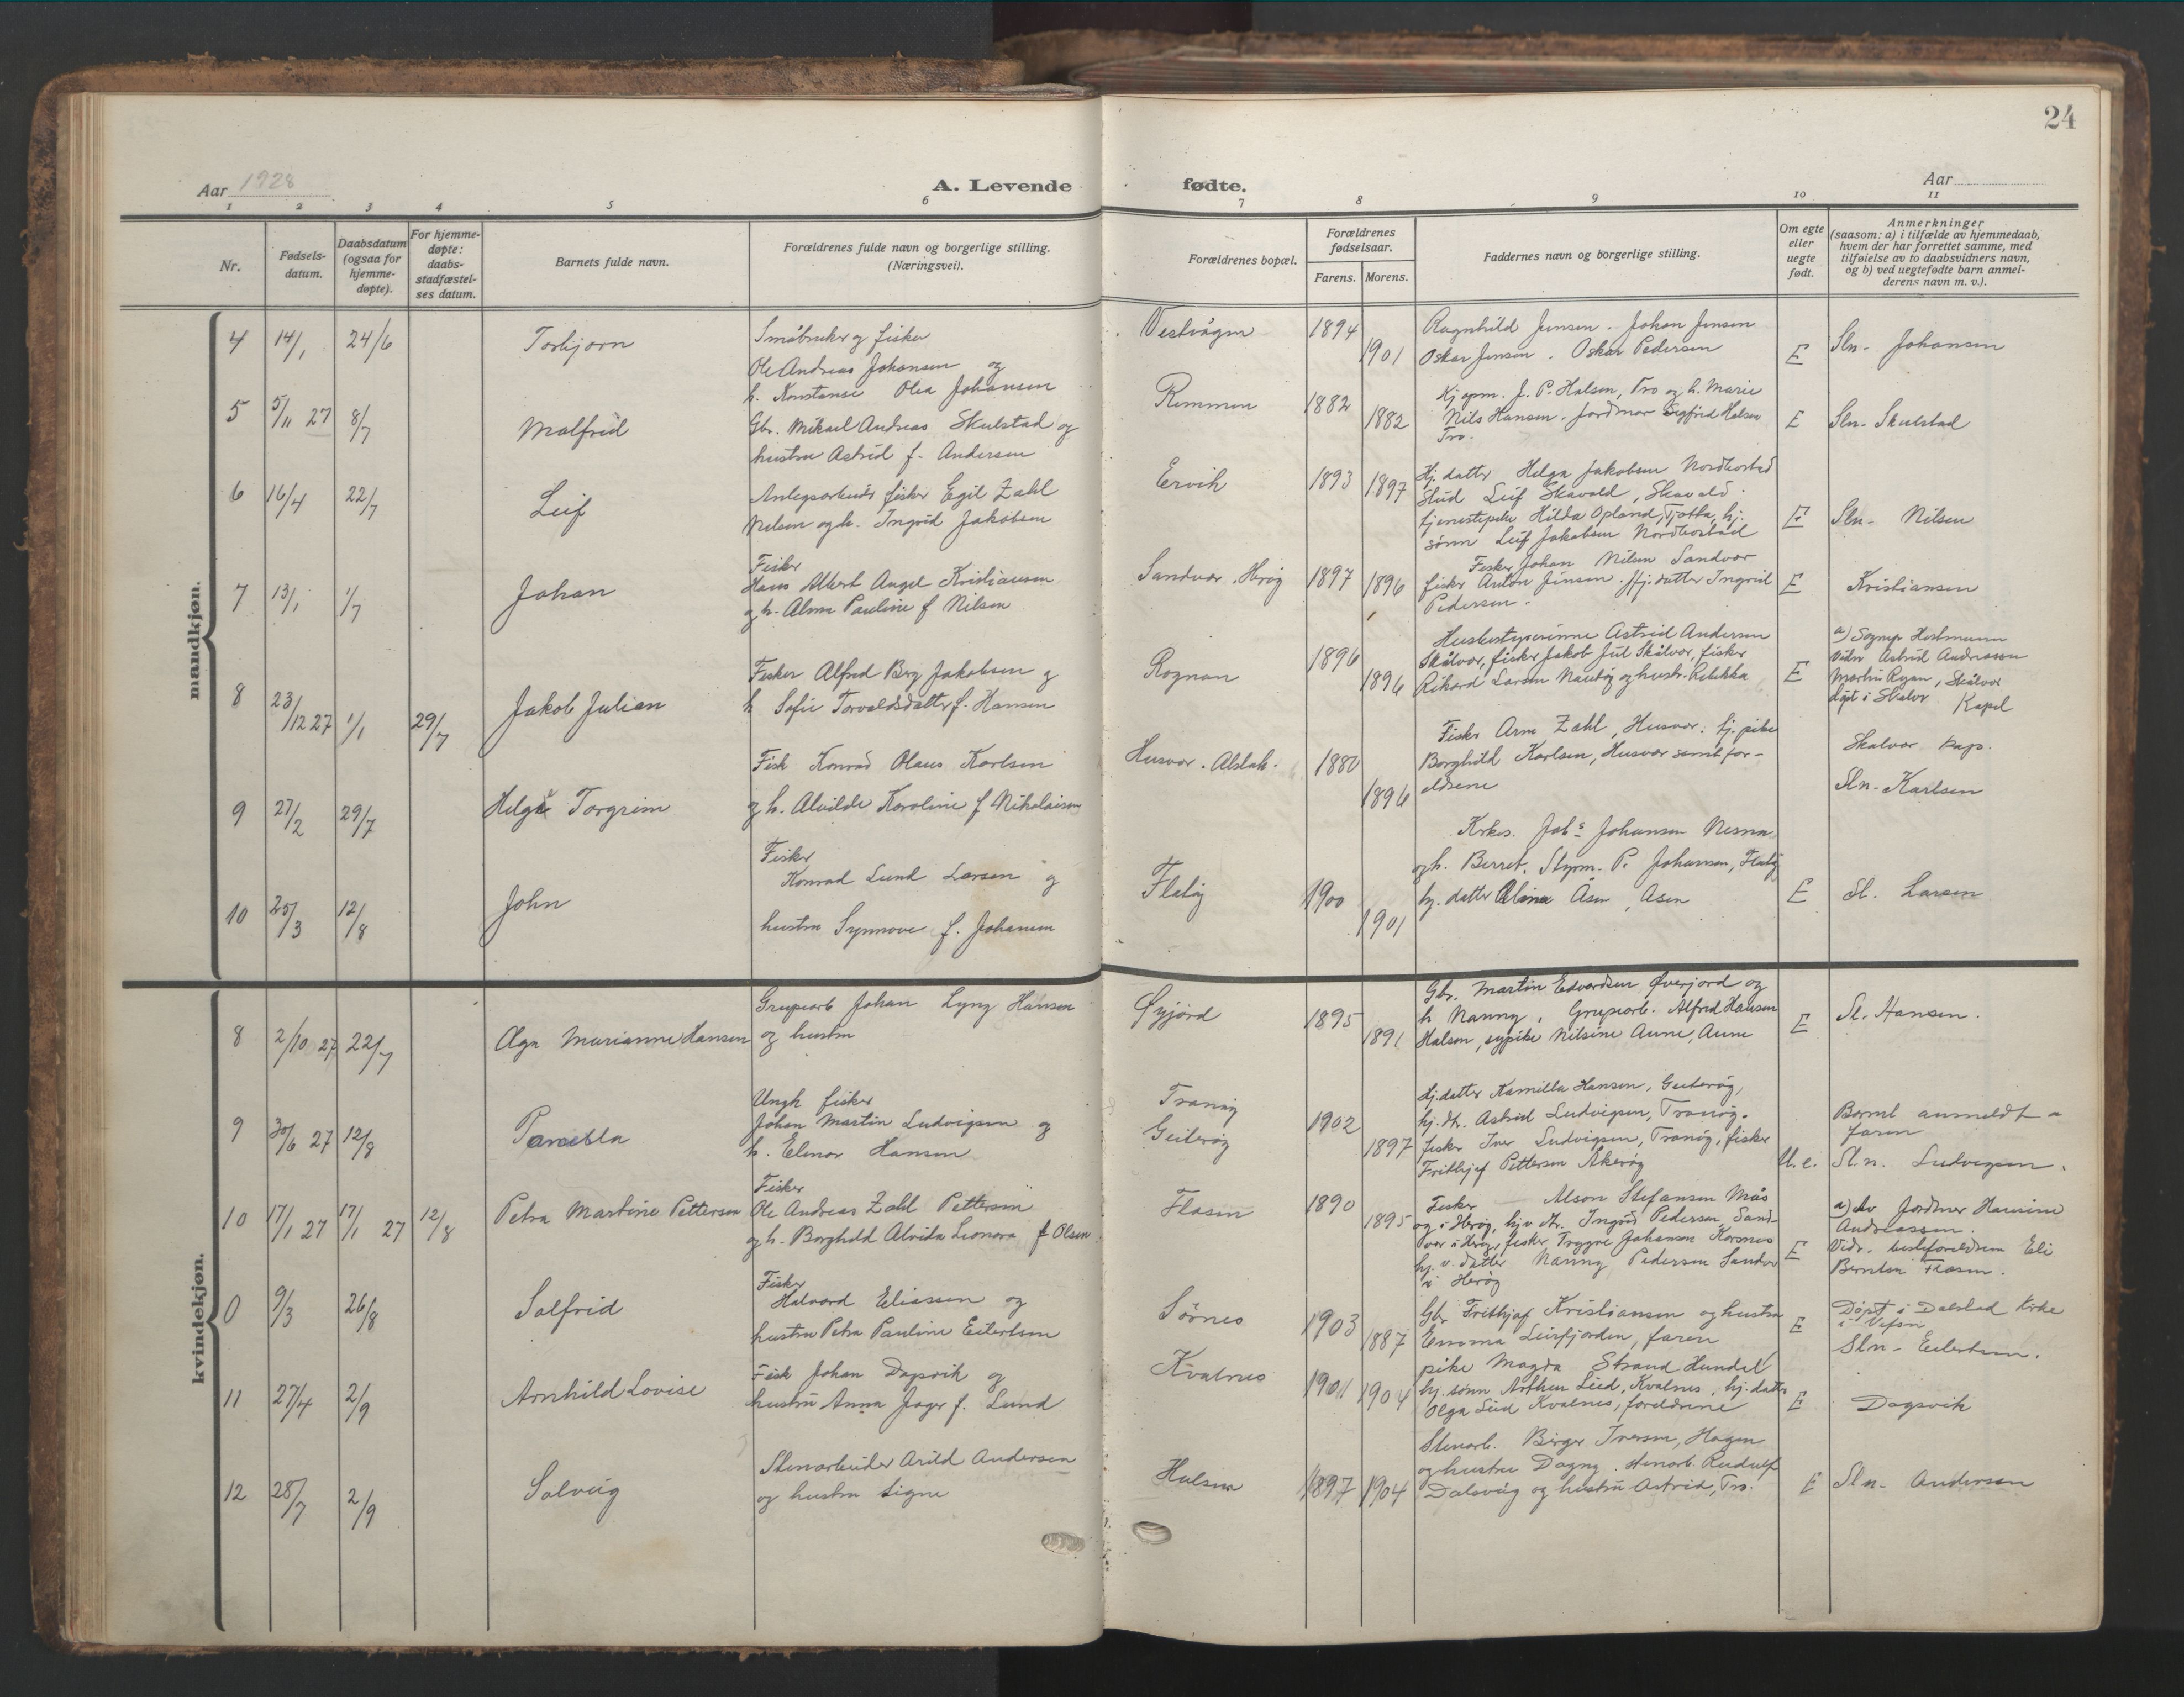 24
Aar 1928
A. Levende fødte.
Aar
1 2 3 4 5 6 7 8 9 10 11
Nr.
Fødsels-
datum.
Daabsdatum
(ogsaa for
hjemme-
døpte).
For hjemme-
døpte:
daabs-
stadfæstel-
ses datum.
Barnets fulde navn.
Forældrenes fulde navn og borgerlige stilling.
(Næringsvei).
Forældrenes bopæl.
Forældrenes
fødselsaar.
Farens. Morens.
Faddernes navn og borgerlige stilling.
Om egte
eller
uegte
født.
Anmerkninger
(saasom: a) i tilfælde av hjemmedaab,
hvem der har forrettet samme, med
tilføielse av to daabsvidners navn,
og b) ved uegtefødte barn anmel-
derens navn m. v.).
mandkjøn.
4 14/1 24/6
Torbjørn
Småbruker og fisker
Ole Andreas Johansen og
h. Konstanse Olea Johansen
Vestvågen
1894
1901
Ragnhild Jensen. Johan Jensen
Oskar Jensen. Oskar Pedersen
E
Sln. Johansen
5 5/11 27 8/7
Malfrid
Gbr. Mikael Andreas Skulstad og
hustru Astrid f. Andersen
Remmen
1882
1882
Kjøpm. J. P. Halsen, Tro og h. Marie
Nils Hansen. Jordmor Sigfrid Halsen
Tro.
E
Sln. Skulstad
6 16/4 22/7
Leif
Anlegsarbeider fisker Egil Zahl
Nilsen og h. Ingrid Jakobsen
Ervik
1893 1897
Hj. datter Helga Jakobsen Nordbostad
Stud Leif Skavold, Skavold.
tjenestepike Hilda Opland, Tjøtta, hj.
sønn Leif Jakobsen Nordbostad
E
Sln. Nilsen
7 13/1 1/7
Johan
Fisker
Hans Albert Angel Kristiansen
og h. Alma Pauline f Nilsen
Sandvær. Herøy
1897 1896
Fisker Johan Nilsen Sandvær
fisker Anton Jensen. Hj. datter Ingrid
Pedersen.
E
Kristiansen
8 23/12 27 1/1 29/7
Jakob Julian
Fisker Alfred Berg Jakobsen og
h. Sofie Torvaldsdatter f. Hansen
Rognan
1896
1896
Husbestyrerinne Astrid Andersen
Skålvær, fisker Jakob Jul Skålvær, fisker
Rikard Larsen Nautøy og hustr. Rebekka
E
a) Sognep
Vidn Astrid Andreassen
Martin Ryan, Skålvær
døpt i Skålvær Kapel
9 27/2 29/7
Helge Torgrim
Fisk Konrad Olaus Karlsen
og h. Alvilde Karoline f Nikolaisen
Husvær. Alstah.
1880
1896
Fisker Arne Zahl, Husvær. hj. pike
Borghild Karlsen, Husvær samt for-
eldrene
Skalvær Kap.
Sln. Karlsen
10 25/3 12/8
John
Fisker
Konrad Lund Larsen og
hustru Synnøve f. Johansen
Flatøy
1900
1901
Krkes. Johs Johansen Nesna
og h. Berret. Styrm. P. Johansen, Flatøy
hj. datter Alina Åsen, Åsen
E
Sl. Larsen
kvindekjøn.
8 2/10 27 22/7
Aga Marianne Hansen
Grupearb Johan Lyng Hansen
og hustru
Øyjord
1895
1891
Gbr. Martin Edvardsen Øverjord og
h Nanny, Grupearb. Alfred Hansen
Halsen, sypike Nilsine Aune, Aune
E
Sl. Hansen.
9 30/6 27 12/8
Ungk fisker
Johan Martin Ludvigsen og
h. Elenor Hansen
Tranøy
Geiterøy
1902
1897
Hj. datter Kamilla Hansen, Geiterøy,
hj. dtr. Astrid Ludvigsen, Tranøy.
fisker Iver Ludvigsen, Tranøy, fisker
Frithjof Pettersen Åkerøy
U. e.
Barnet anmeldt a
faren
Sl.n. Ludvigsen.
10 17/1 27 17/1 27 12/8
Petra Martine Pettersen
Fisker
Ole Andreas Zahl Pettersen
og h. Borghild Alvida Leonora f Olsen
Flasen
1890
1895
Fisker Alson Stefansen Mås
øy i Herøy, hj. v. dtr. Ingrid Pedersen, Sand-
vær i Herøy, fisker Trygve Johansen Kornes
hj. v. datter Nanny Pedersen Sandvær
i Herøy
E
a) Av Jordmor Hansine
Andreassen.
Vidr. besteforeldrene Eli
Berntsen Flasen.
0 9/3 26/8
Solfrid
Fisker
Halvard Eliassen og
hustru Petra Pauline Eilertsen
Sörnes
1903
1887
Gbr Frithjof Kristiansen og hustru
Emma Leirfjorden, faren
E
Döpt i Dolstad Kirke
i Vefsn
Sln. Eilertsen.
11 27/4 2/9
Arnhild Lovise
Fisk Johan Dagsvik og
hustru Anna Jager f. Lund
Kvalnes
1901 1904
pike Magda Strand Hundal
hj. sønn Arthur Lied, Kvalnes, hj. datter
Olga Lied Kvalnes, foreldrene
E
Dagsvik
12 28/7 2/9
Solveig
Stenarbeider Arild Andersen
og hustru Signe
Halsen
1897 1904
Stenarb. Birger Iversen, Hagen
og hustru Dagny. stenarb. Rudulf
Dalsveig og hustru Astrid, Tro.
E
Sln. Andersen